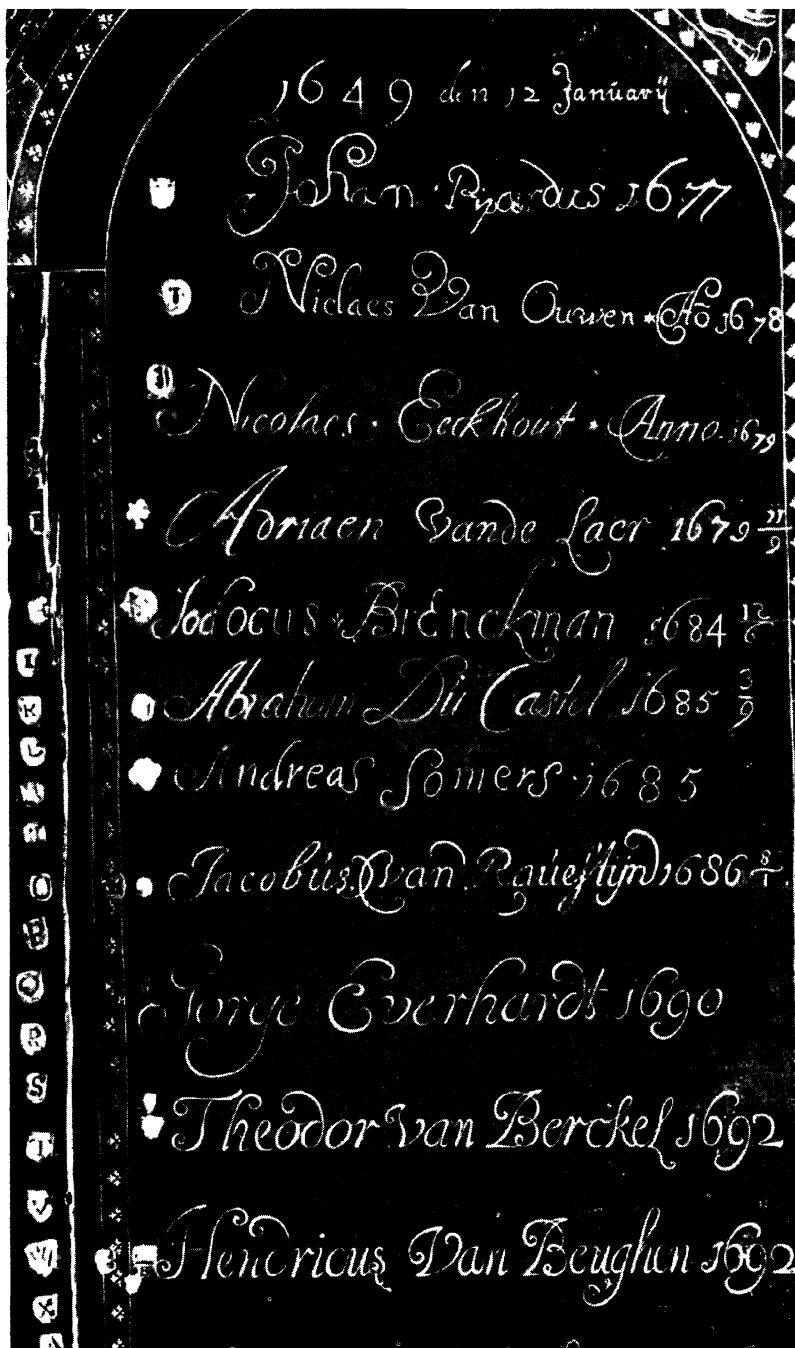 1649 den 12 Januarij
Johan Pijardus 1677
Niclaes Van Ouwen * Ao 1678
Nicolaes · Eeckhout * Anno 1679
Adriaen Vande Laer 1679 21/9
Jodocus * Brenckman 1684 12/6
Abraham Du Castel 1685 3/9
Andreas Somers · 1685
Jacobús van Raúestijn 1686 8/1
Jorge Everhardt 1690
Theodor van Berckel 1692
Hendricus Van Beughen 1692
I
K
L
M
N
O
P
Q
R
S
T
V
W
X